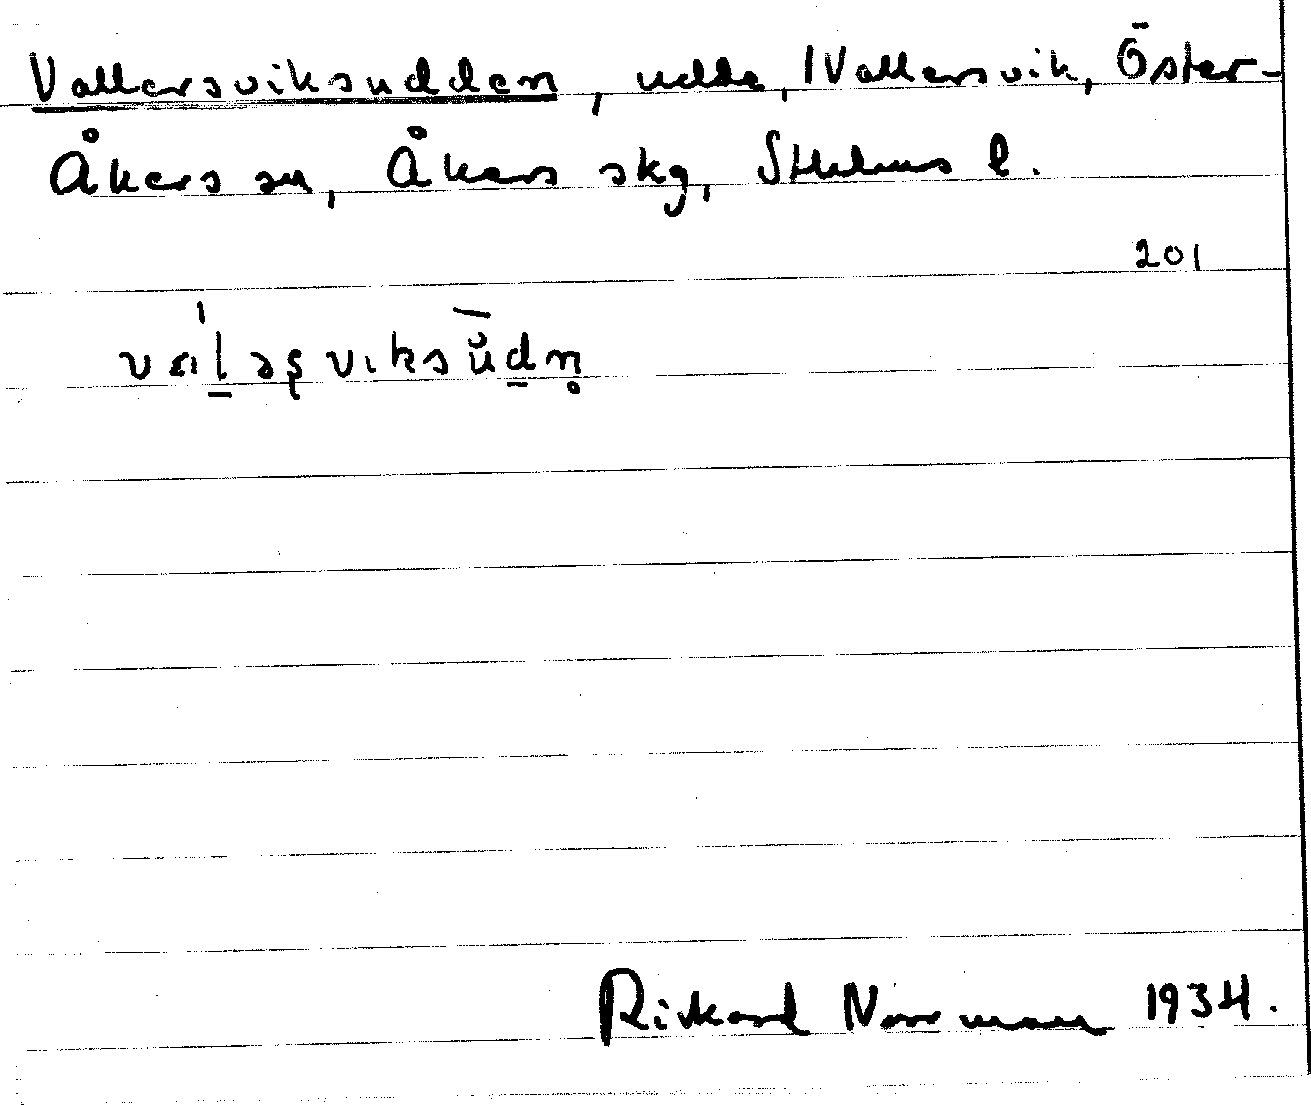 Vallersviksudden, udde, 1 Vallersvik, Öster-
Åkers sn, Åkers skg, Sthlms l.
201
Rickard Norrman 1934.